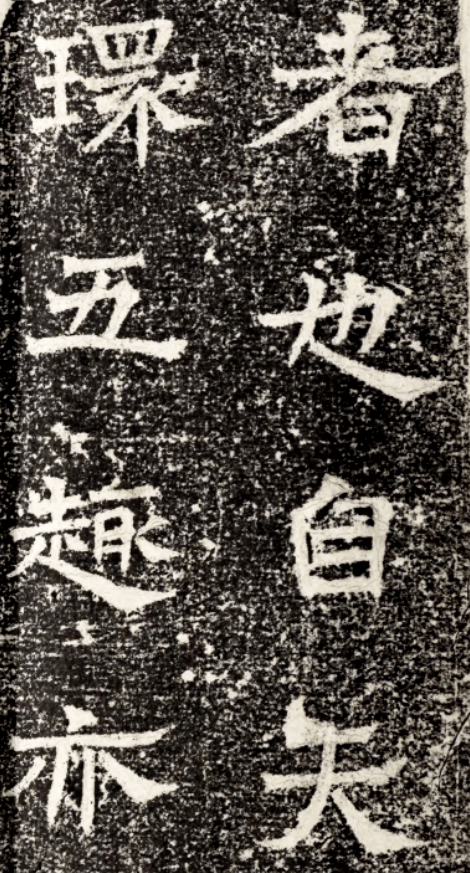 者也自
環五趣亦